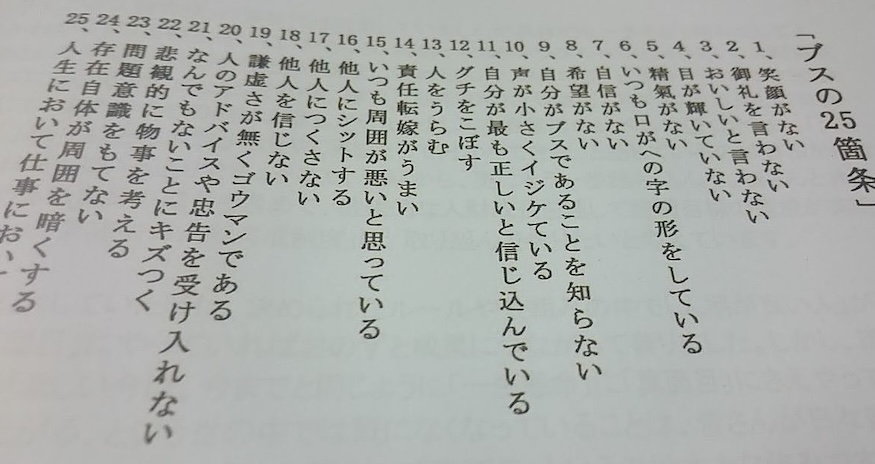 「ブスの25箇条」
1、笑顔がない
2、御礼を言わない
3、おいしいと言わない
4、目が輝いていない
5、精氣がない
6、いつも口がへの字の形をしている
7、自信がない
8、希望がない
9、自分がブスであることを知らない
10、声が小さくイジケている
11、自分が最も正しいと信じ込んでいる
12、グチをこぼす
13、人をうらむ
14、責任転嫁がうまい
15、いつも周囲が悪いと思っている
16、他人にシットする
17、他人につくさない
18、他人を信じない
19、謙虚さが無くゴウマンである
20、人のアドバイスや忠告を受け入れない
21、なんでもないことにキズつく
22、悲観的に物事を考える
23、問題意識をもてない
24、存在自体が周囲を暗くする
25、人生において仕事におい